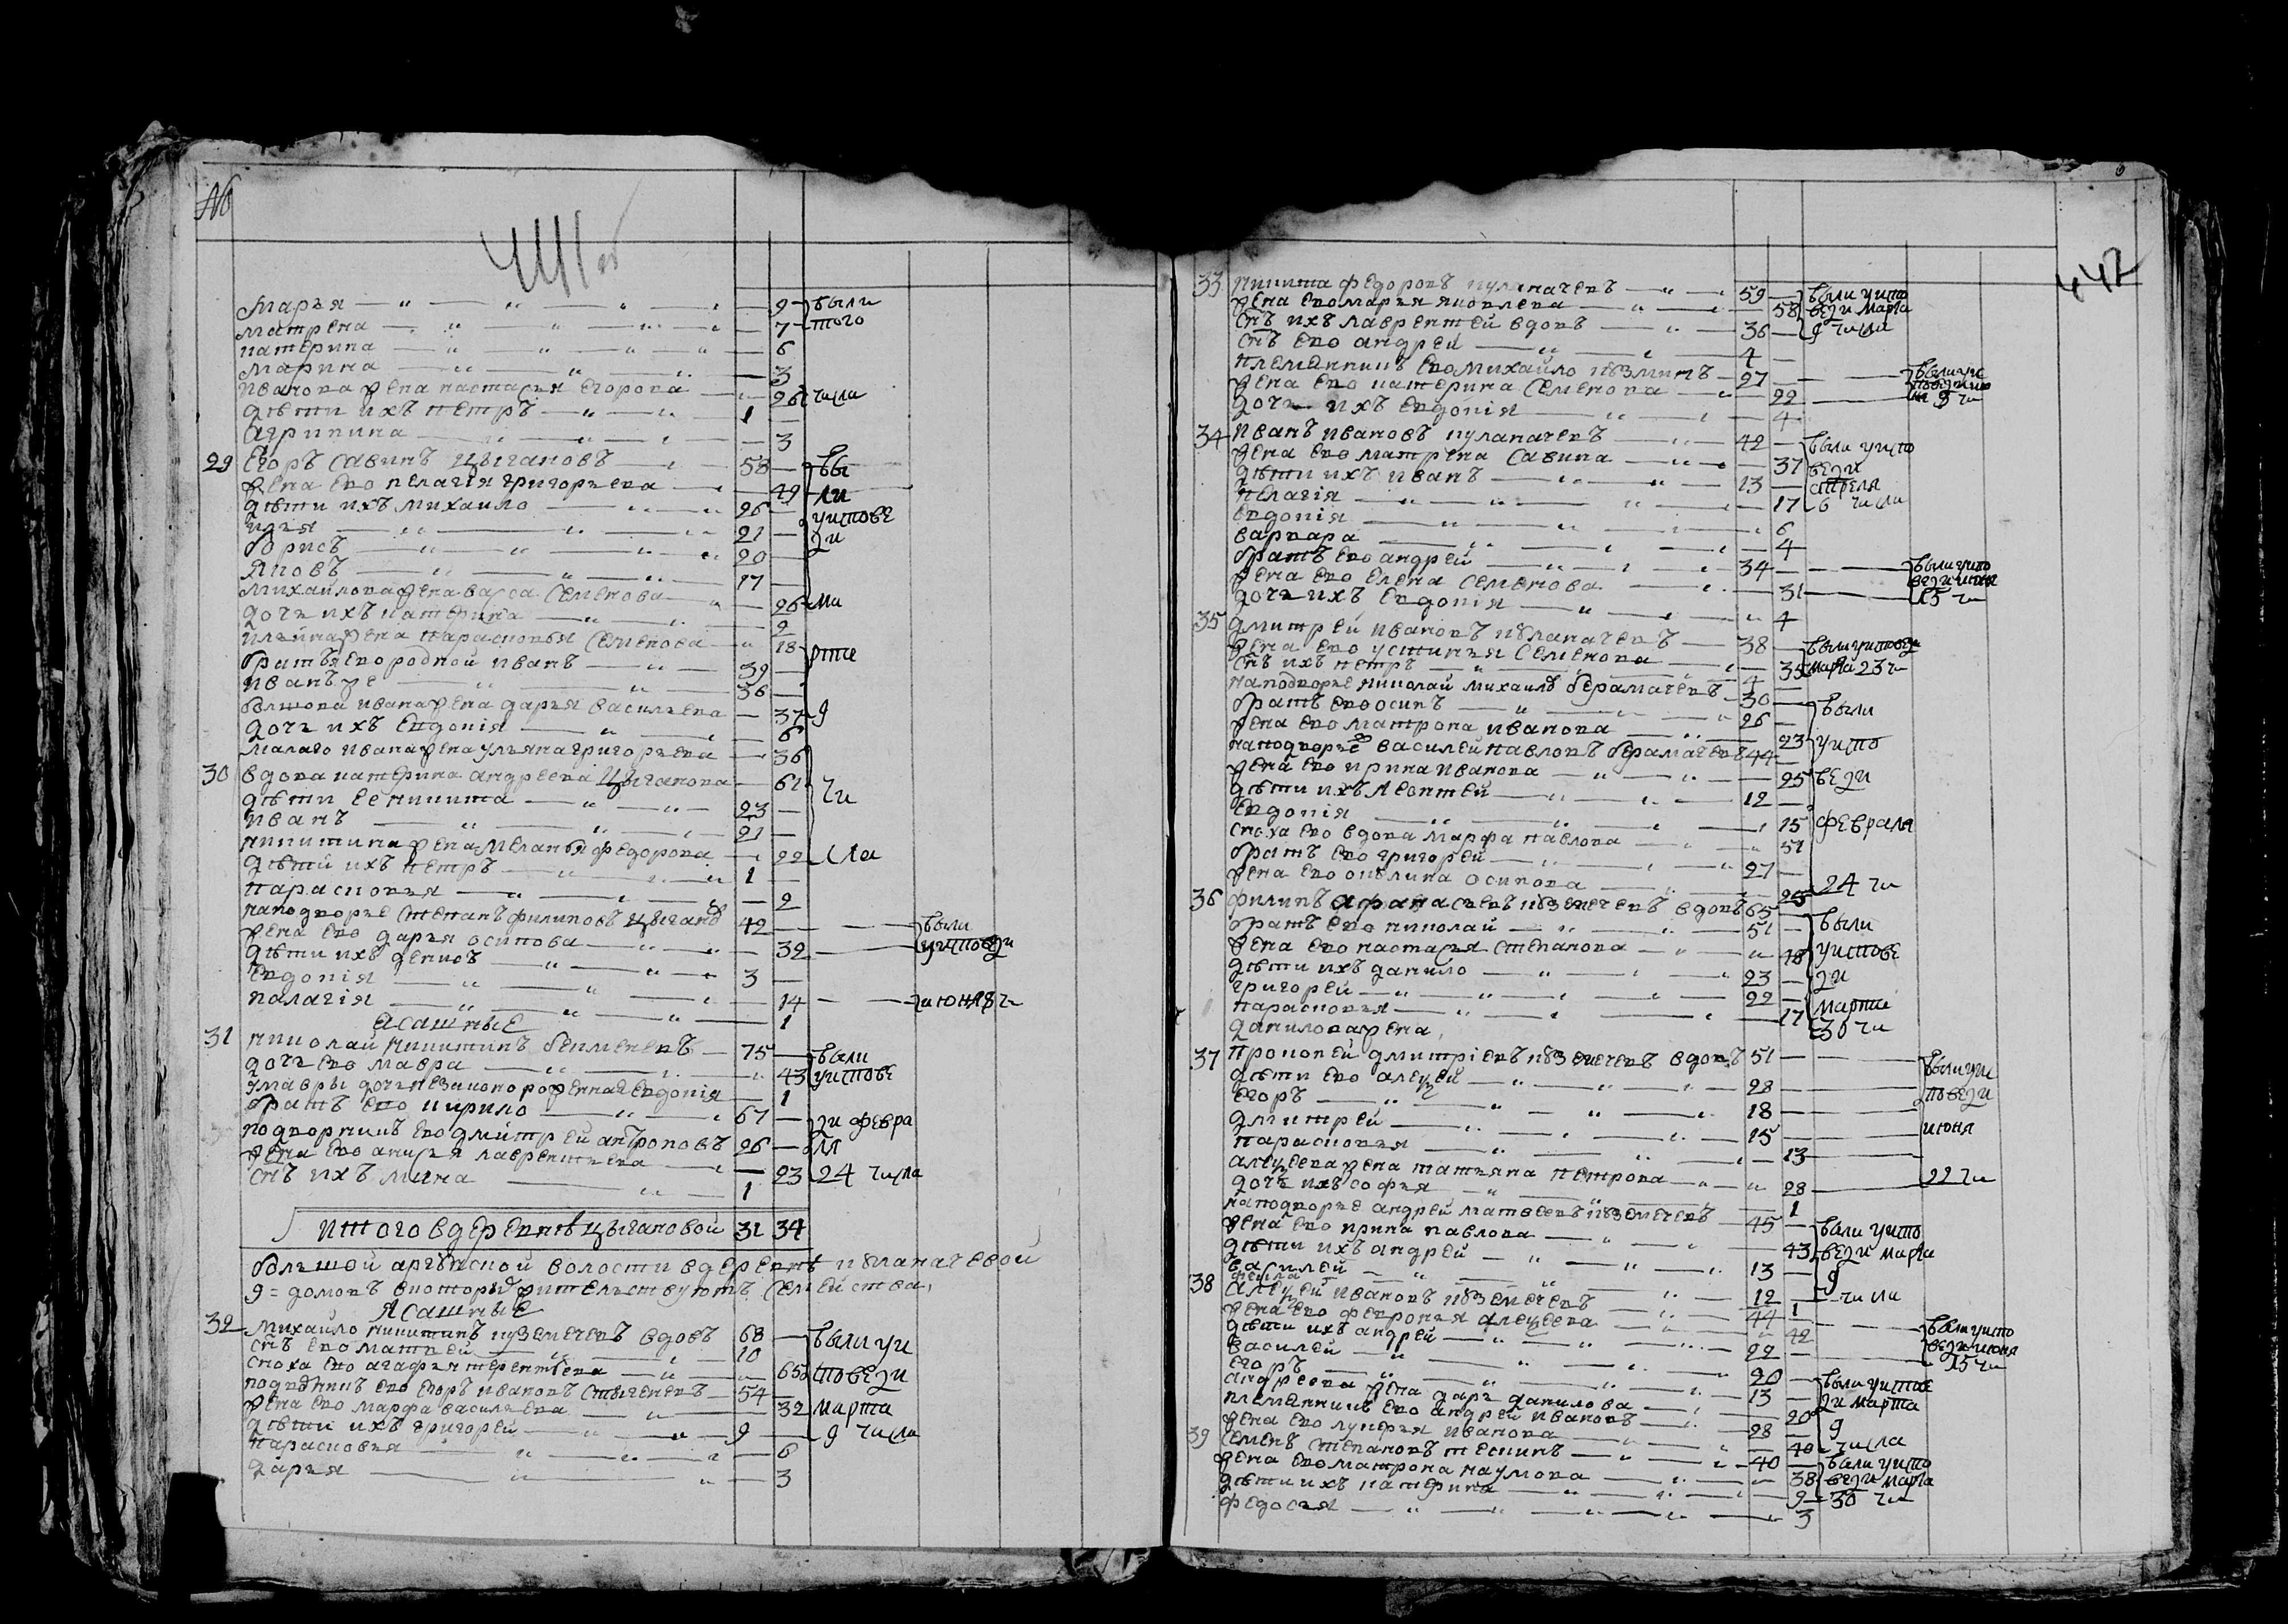 №
Марья — 9 были
матрена — 7 того
катерина — 6
марина — 3
иванова жена настасья егорова — 26 числа
дѣти ихъ петръ — 1
агрипина — 3
29 егоръ савинъ цыгановъ — 58 бы
жена ево пелагія григорьева — 49 ли
дѣти ихъ михайло — 26
илья — 21 уиспове
борисъ — 20 ди
яковъ — 17
михайлова жена васса семенова — 26 ма
дочь ихъ катерина — 2
ильина жена парасковья семенова — 18 рта
братья ево родной иванъ — 39
иванъ же — 36
большова ивана жена дарья васильева — 37 9
дочь ихъ евдокія — 6
малаго ивана жена ульяна григорьева — 36
30 вдова катерина андреева цыганова — 61 чи
дѣти ее никита — 23
иванъ — 21
никитина жена меланья федорова — 22 сла
дѣтй ихъ петръ — 1
парасковья — 2
наподворье степанъ филиповъ цыгано — 42 были
жена ево дарья осипова — 32 уисповеди
дѣти ихъ денисъ — 3
евдокія — 14
палагія — 1 июня 8 чи
Ясашные
31 николай никитинъ бекменевъ — 75 были
дочь ево мавра — 43 уиспове
умавры дочь незаконорожденная евдокія — 1
братъ ево кирило — 67 ди февра
подворникъ ево дмитрей антроповъ 26 ля
жена ево анисья лаврентьева — 23 24 числа
снъ ихъ мина — 1
итого в деревнѣ цыгановой 31 34
большой арбѣской волости в деревнѣ кулакачевой
9 = домовъ вкоторы жительствуютъ семейства,
Ясашные
32 михайло никитинъ кузмечевъ вдовъ 68 были уи
снъ ево матвей — 10
сноха ево агафья терентьева — 65 споведи
подворникъ ево егоръ ивановъ — 54
жена ево марфа васильева — 32 марта
дѣти ихъ григорей — 9 9 числа
парасковья — 6
дарья — 3
442
33 никита федоровъ кулакачевъ — 59 были уиспо
жена ево марья яковлева — 58 веди марта
снъ ихъ лаврентей вдовъ — 36 9 числа
снъ ево андрей — 4
племянникъ ево михайло кузминъ — 27 были уис
жена ево катерина семенова — 22 9 чи
дочь ихъ евдокія — 4
34 иванъ ивановъ кулакачевъ — 42 были уиспо
жена ево матрена савина — 37 веди
дѣти ихъ иванъ — 13 апреля
пелагія — 17 6 числа
евдокія — 6
варвара — 4
братъ ево андрей — 34 были уиспо
жена ево елена семенова — 31 веди июня
дочь ихъ евдокія — 4 15 чи
35 дмитрей ивановъ кулакачевъ — 38 были уисповеди
жена ево устинья семенова — 35 марта 23 чи
снъ ихъ петръ — 4
наподворье николай михаилъ берамачевъ — 30
братъ ево осипъ — 26 были
жена ево матрона иванова — 23 уиспо
наподворье василей павловъ берамачевъ 44
жена ево ирина иванова — 25 веди
дѣти ихъ леонтей — 12
евдокія — 15 февраля
сноха ево вдова марфа павлова — 51
братъ ево григорей — 27
жена ево акилина осипова — 25 24 чи
36 филипъ афанасьевъ кузмечевъ вдовъ 65
братъ ево николай — 51 были
жена ево настасья степанова — 48 уиспове
дѣти ихъ данило — 23 ди
григорей — 22
парасковья — 17 марта
данилова жена, 30 чи
37 прокопей дмитріевъ кузмечевъ вдовъ 51 были уис
дѣти ево алеѯей — 28 поведи
егоръ — 18
дмитрей — 15 июня
парасковья — 13
алеѯеева жена татьяна петрова — 28 22 чи
дочь ихъ софья — 1
наподворье андрей матвеевъ кузмечевъ — 45 были уиспо
жена ево ирина павлова — 43 веди марта
дѣти ихъ андрей — 13 9
василей — 12 числа
38 алеѯей ивановъ кузмечевъ — 44
жена ево февронья алеѯеева — 42 были уиспо
дѣти ихъ андрей — 22 веди июня
василей — 20 15 чи
егоръ — 13 были уиспове
андреева жена дарья данилова — 20 ди марта
племянникъ ево андрей ивановъ — 28 9
жена ево лукерья иванова — 40 числа
39 семенъ степановъ — 40 были уиспо
жена ево матрона наумова — 38 веди марта
дѣти ихъ катерина — 9 30 чи
федосья — 3